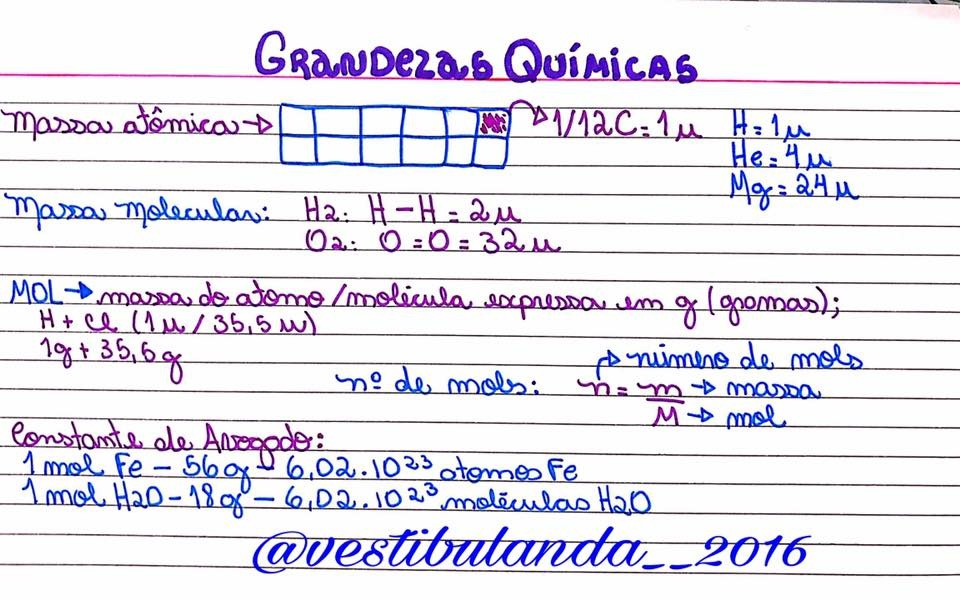 GRANDEZAS QUÍMICAS
Massa atômica → 1/12C = 1μ
H = 1μ
He = 4μ
Mg = 24μ
Massa molecular: H2: H - H = 2μ
O2: O = O = 32μ
MOL → massa do atomo/molécula expressa em g (gramas);
H + Cl (1μ / 35,5μ)
1g + 35,5g
nº de mols: n = m/M
→ número de mols
→ massa
→ mol
Constante de Avogado:
1 mol Fe - 56g - 6,02.10²³ atomos Fe
1 mol H2O - 18g - 6,02.10²³ moléculas H2O
@vestibulanda__2016